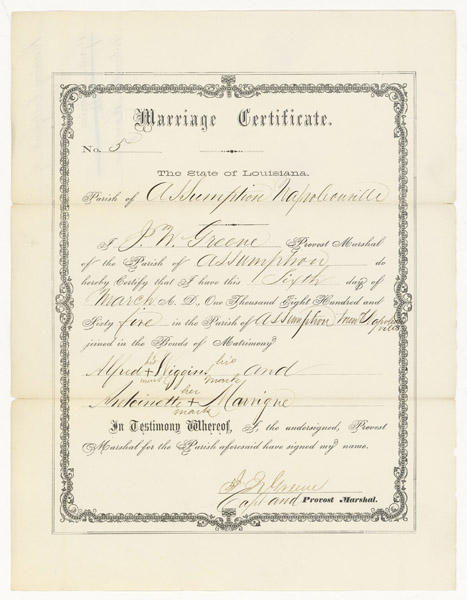 Marriage Certificate.
No. 5
The State of Louisiana.
Parish of Assumption Napoleonville
I J. W. Greene Provost Marshal
of the Parish of Assumption do
hereby Certify that I have this Sixth day of
March A. D. One Thousand Eight Hundred and
Sixty five in the Parish of Assumption town of Napoleonville
joined in the Bonds of Matrimony
his his
Alfred + Wiggins and
mark mark
her
Antoinette + Marrigne
mark
In Testimony Whereof, I the undersigned, Provost
Marshal for the Parish aforesaid have signed my name.
J. W. Greene
Capt and Provost Marshal.